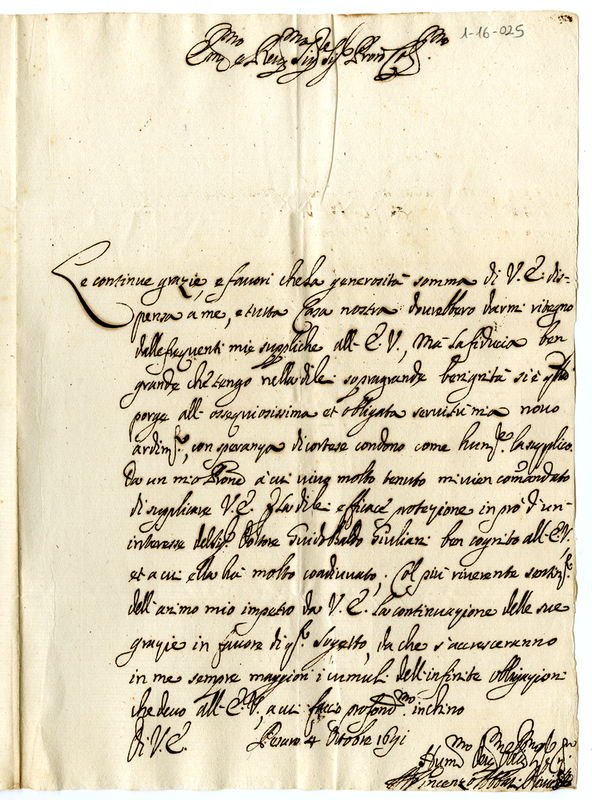 1-16-025
Em.mo e Rev.mo Sig.re Sig.r Pron Col.mo
Le continue grazie, e favori che la generosità somma di V. E. dis-
pensa a me, e tutta Casa nostra dovrebbero darmi ritegno
dalle frequenti mie suppliche all' E. V., Ma la fiducia ben
grande che tengo nella di lei sopragrande benignità si è
porge all' ossequiosissima et obligata servitù mia novo
ardim.to, con speranza di cortese condono come hum.te la supplico.
Da un mio Prone a cui vivo molto tenuto mi vien comandato
di supplicare V. E. della di lei efficace protezione in prò d' un'
interesse del Sig.r Dottore Guidobaldo Giuliani ben cognito all' E. V.
et a cui ella hà molto coadiuvato; Col più riverente sentim.to
dell' animo mio imploro da V. E. la continuazione delle sue
grazie in favore di q.to sogetto, da che s'accresceranno
in me sempre maggiori i cumuli dell' infinite obligazioni
che devo all' E. V., a cui faccio profond.mo inchino
Di V. E. Pesaro 4 Ottobre 1691
Hum.mo
Vincenzo